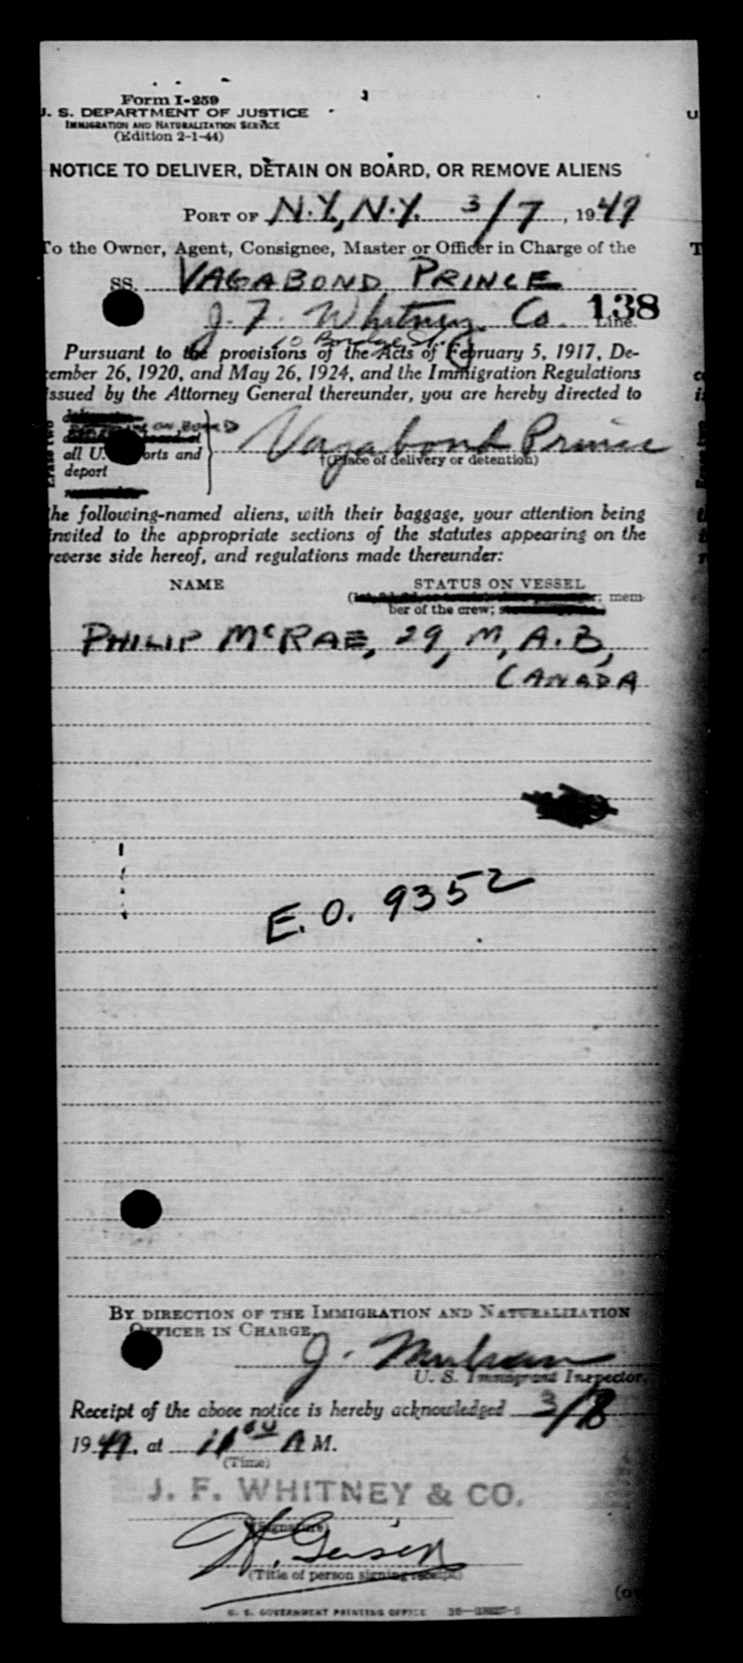 Form I-259
U. S. DEPARTMENT OF JUSTICE
IMMIGRATION AND NATURALIZATION SERVICE
(Edition 2-1-44)
NOTICE TO DELIVER, DETAIN ON BOARD, OR REMOVE ALIENS
PORT OF N.Y., N.Y. 3/7, 1949
To the Owner, Agent, Consignee, Master or Officer in Charge of the
SS. VAGABOND PRINCE
J. F. Whitney Co. 138 Line.
10 Bridge St.
Pursuant to the provisions of the Acts of February 5, 1917, De-
cember 26, 1920, and May 26, 1924, and the Immigration Regulations
issued by the Attorney General thereunder, you are hereby directed to
ON BOARD
all U. orts and
deport
Vagabond Prince
†(Place of delivery or detention)
the following-named aliens, with their baggage, your attention being
invited to the appropriate sections of the statutes appearing on the
reverse side hereof, and regulations made thereunder:
NAME STATUS ON VESSEL
; mem-
ber of the crew;
PHILIP McRAE, 29, M, A.B,
CANADA
E.O. 9352
BY DIRECTION OF THE IMMIGRATION AND NATURALIZATION
OFFICER IN CHARGE,
J.
U. S. Immigrant Inspector.
Receipt of the above notice is hereby acknowledged 3/8
1949, at 11 A M.
(Time)
J. F. WHITNEY & CO.
(Signature)
(Title of person signing receipt)
U. S. GOVERNMENT PRINTING OFFICE